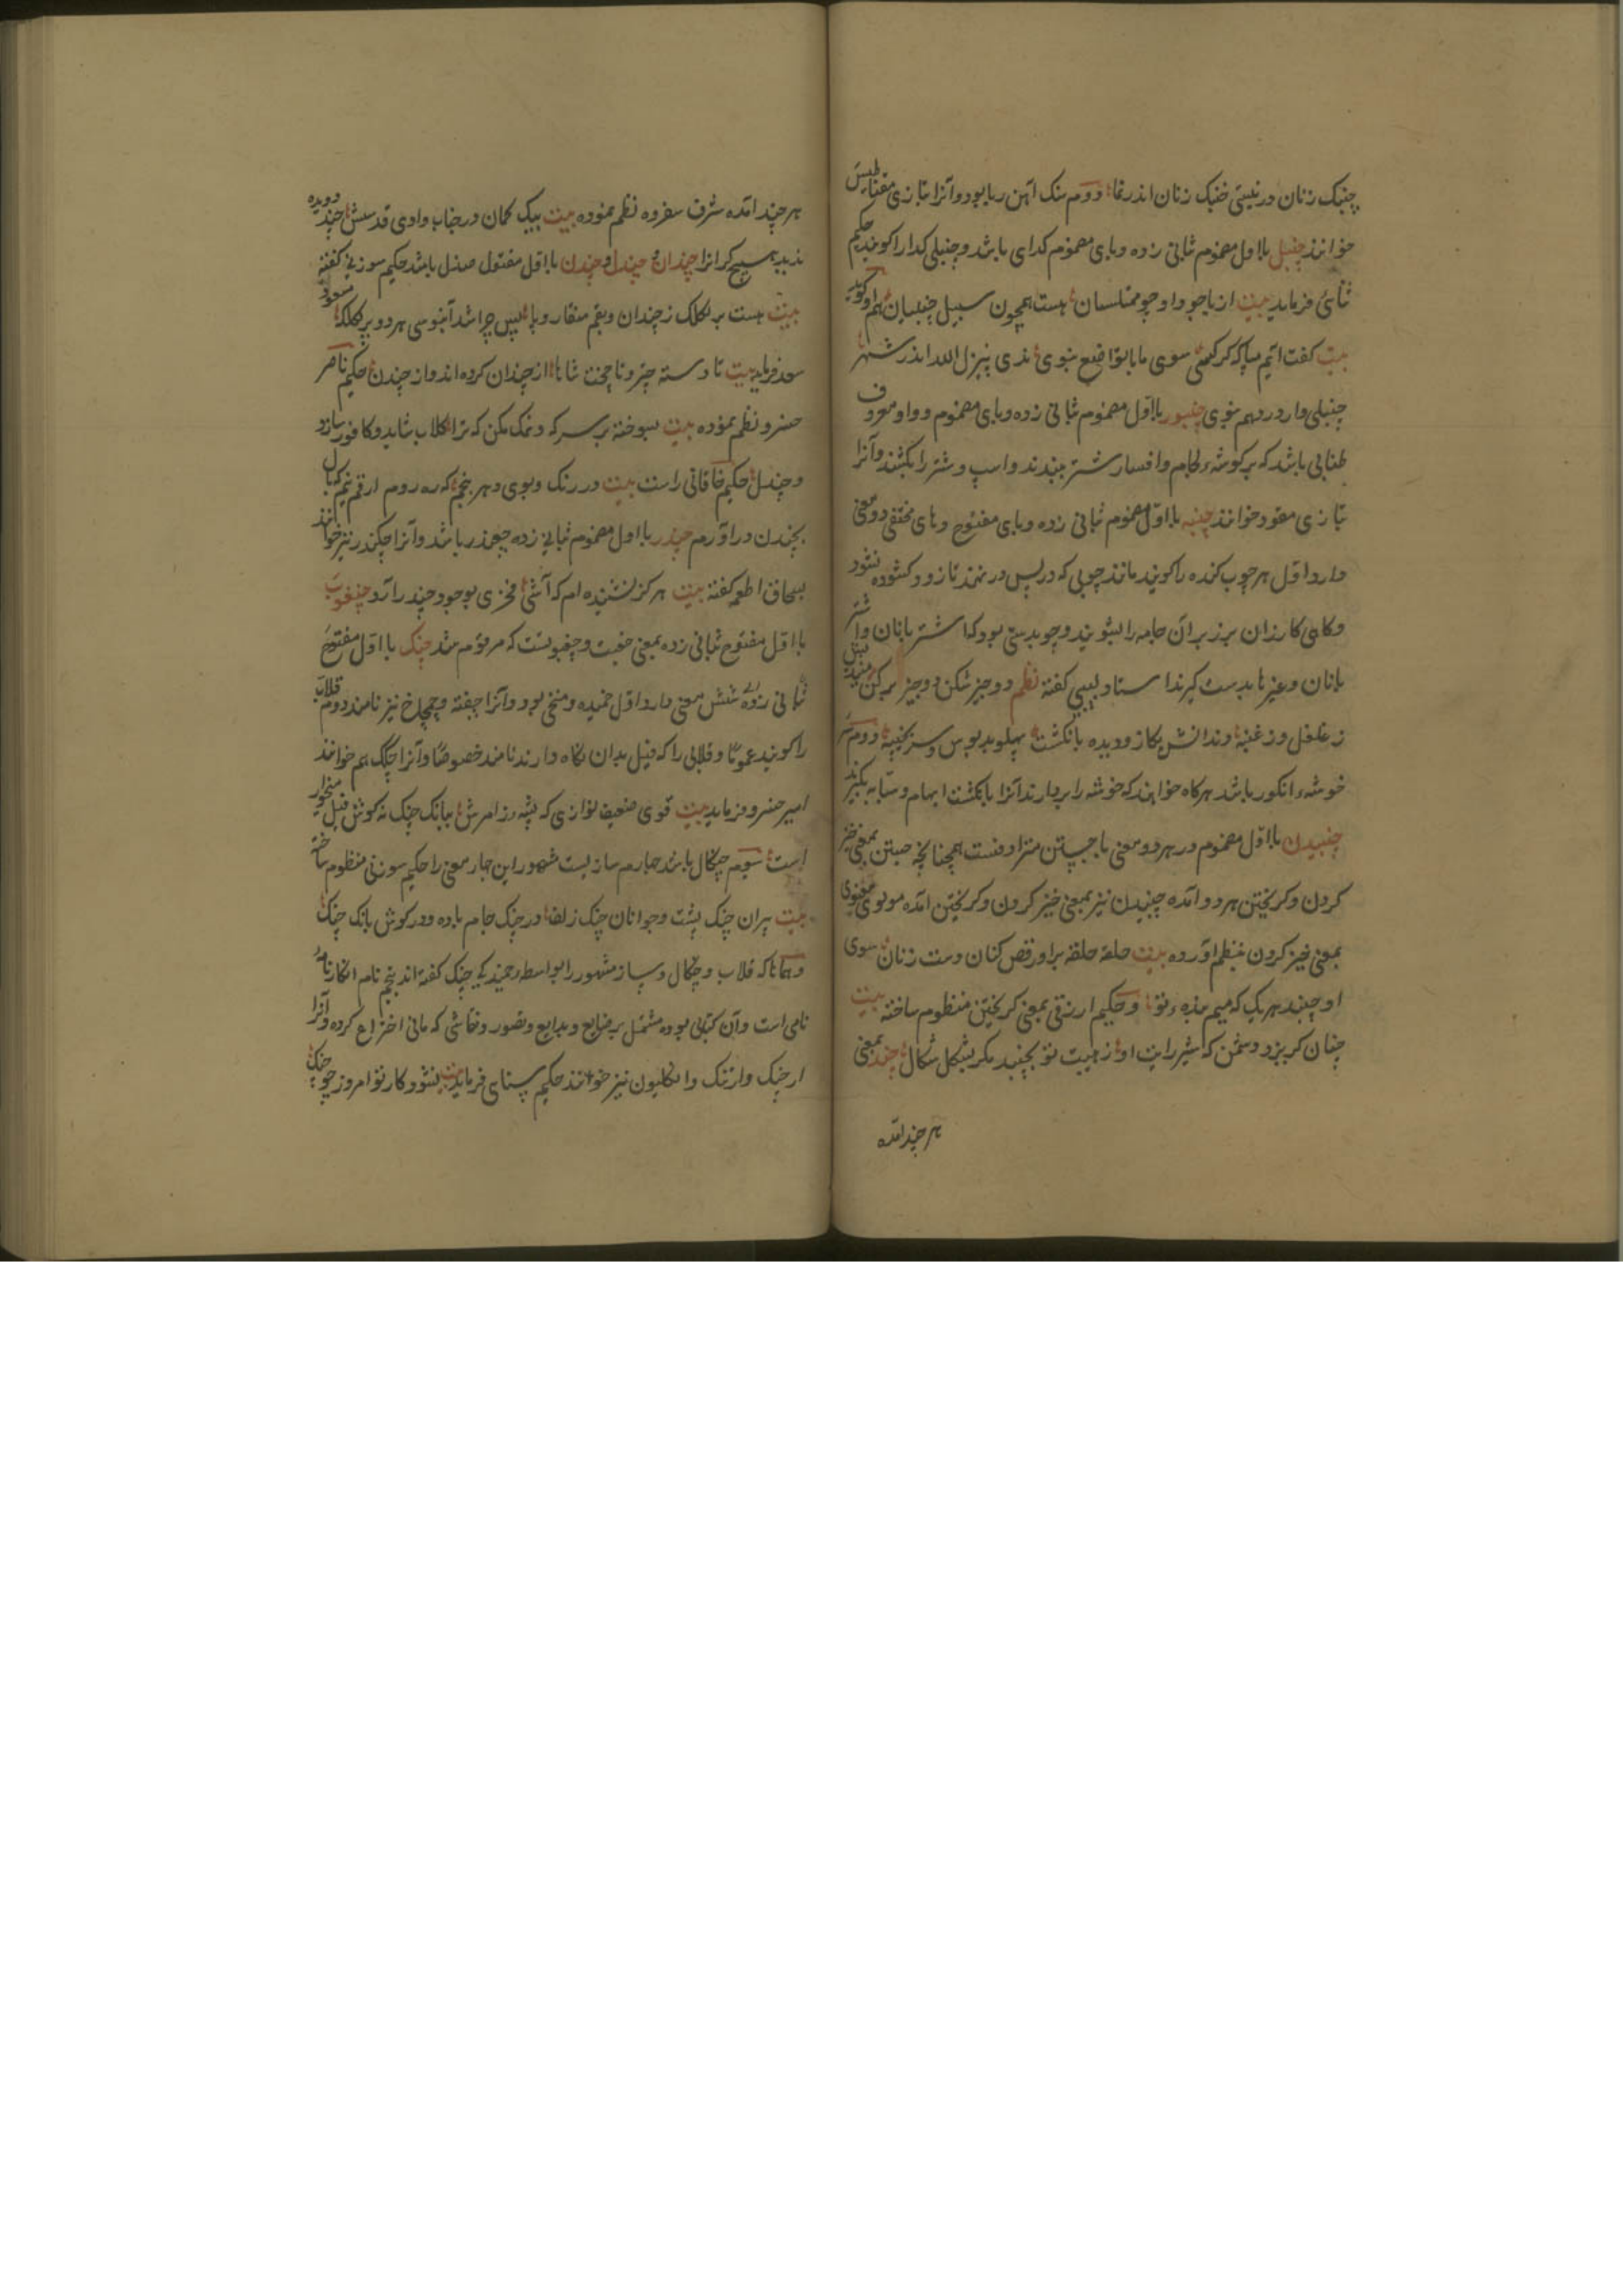 چنبک زنان در نیستی خنبک زنان اندر غنا دوم سنک آهن ربا بود و آنرا بتازی مقناطیس
خوانند چنبل با اول مضموم ثانی زده و بای مضموم کدای باشد و چنبلی کدا را کویند حکیم
ثنائی فرماید بیت از پا جو و او جو ممتلسان هست همچون سبیل چنبلیان هم او کوید
بیت کفت سوی ما با تواضع نبوی ینزل الله اندر شهر
چنبلی وار در دهم نبوی چنبور با اول مضموم ثانی زده و بای مضموم و واو معروف
طنابی باشد که بر کوشه لجام و افسار شتر ببندند و اسپ و شتر را بکشند و آنرا
بتازی مقود خوانند چنبه با اول مضموم ثانی زده و بای مفتوح و های مختفی دو معنی
دارد اول هر چوب کنده را کویند مانند چوبی که در پس در نهند تا زود کشوده نشود
و کاهی کازران بر زبر آن جامه را بشویند و چوبدستی بود که اشتر بانان و
بانان و غیرها بدست کیرند استاد لبیبی کفته نظم دو چیز شکن دو چیز برکن مندیش
ز غلغل و ز غنبه دندانش بکاز و دیده بانکشت پهلو بدبوس و سر بچنبه دوم
خوشه انکور باشد هرکاه خواهند که خوشه را بردارند آنرا بانکشت ابهام و سبابه بکیرند
چنبیدن با اول مضموم در هر دو معنی با جستن مترادفست همچنانچه جستن بمعنی خیز
کردن و کریختن هر دو آمده چنبیدن نیز بمعنی خیز کردن و کریختن آمده مولوی معنوی
بمعنی خیز کردن بنظم آورده بیت حلقه حلقه بر او رقص کنان دست زنان سوی
او چنبد هر یک که منم بنده تو و حکیم ارزقی بمعنی کریختن منظوم ساخته بیت
چنان کریزد دشمن که شیر رایت او ز هیبت تو بچنبد مکر بشکل شکال چند بمعنی
هر چند آمده
هر چند آمده شرف سفروه نظم نموده بیت بیک کمان در جناب وادی قدسش چند دویده
ندید هیچ کرانرا چندان و چندل و چندن با اول مفتوح صندل باشد حکیم سوزنی کفته
بیت هست بر لکلک ز چندان و بقم منقار و پا پس چرا شد آبنوسی هر دو پر لکلکا مسعود
سعد فرماید بیت تا دسته چتر و ناچخت شاها از چندان کرده اند و از چندن حکیم ناصر
خسرو نظم نموده بیت بسوخته بر سرکه و نمک مکن که ترا کلاب شاید و کافور سازد
و چندل حکیم خاقانی راست بیت در رنک و بوی دهر نپیچم که ره روم ارقم نیم که بال
بچندن در آورم چندر با اول مضموم ثانی زده چغندر باشد و آنرا چکندر نیز خوانند
بسحاق اطعمه کفته بیت هرکز نشنیده ام که آشی فخری بوجود چندر آرد چنغوت
با اول مفتوح ثانی زده بمعنی جغبت و جغبوتست که مرقوم شد چنک با اول مفتوح
ثانی زده شش معنی دارد اول خمیده و منحنی بود و آنرا چفته و چمچاخ نیز نامند دوم قلاب
را کویند عموما و قلابی را که فیل بدان نکاه دارند نامند خصوصا و آنرا چنکک هم خوانند
امیر خسرو فرماید بیت قوی ضعیف نوازی که پشه ز امرش ببانک چنک نه کوش فیل منخوار
است سیوم چنکال باشد چهارم سازیست مشهور این چهار معنی را حکیم سوزنی منظوم ساخته
بیت پیران چنک پشت و جوانان چنک زلف در چنک جام باده و در کوش بانک چنک
و همانا که قلاب و چنکال و ساز مشهور را بواسطه خمیدکی چنک کفته اند پنجم نام انکارنامه
نامی است و آن کتابی بوده مشتمل بر صنایع و بدایع و تصویر و نقاشی که مانی اختراع کرده و آنرا
ارچنک و ارتنک و انکلیون نیز خوانند حکیم سنای فرماید بیت نشود کار تو امروز چو چنک